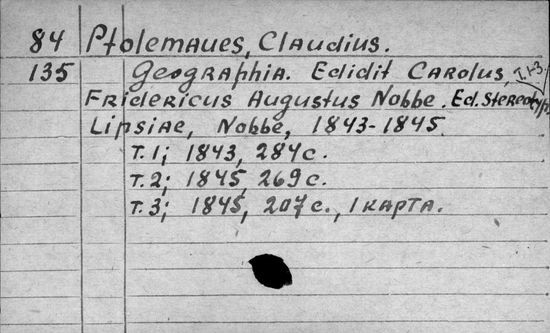 84 Ptolemaues, Claudius.
135 Geographia. Edidit Carolus T. 1-3.
Fridericus Augustus Nobbe. Ed. Stereotyp.
Lipsiae, Nobbe, 1843-1845.
T. 1; 1843, 284 с.
T. 2; 1845, 269 с.
T. 3; 1845, 207 с., 1 карта.